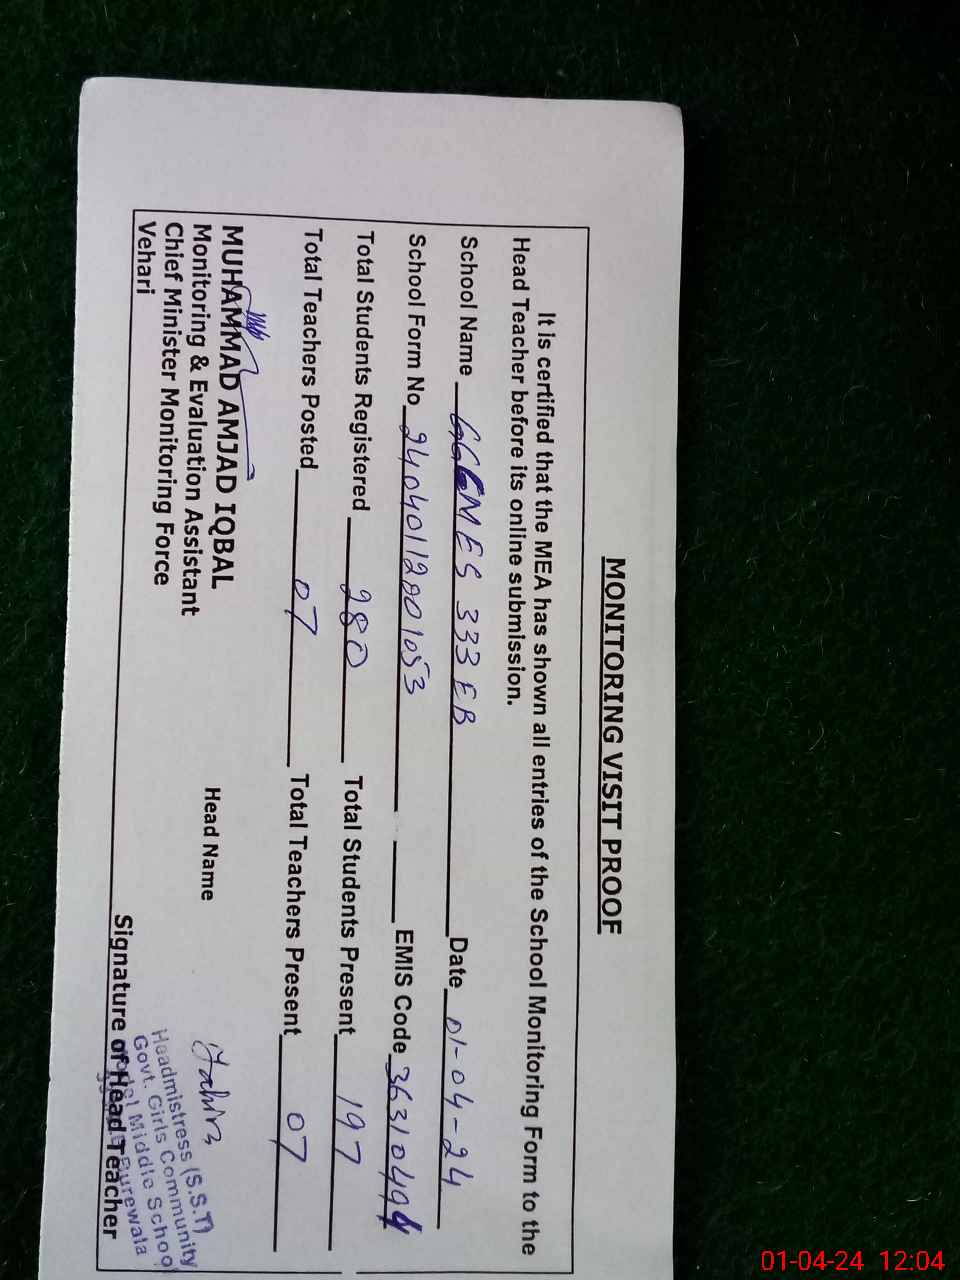 MONITORING VISIT PROOF
It is certified that the MEA has shown all entries of the School Monitoring Form to the
Head Teacher before its online submission.
School Name GGCMES 333 EB Date 01-04-24
School Form No 24040112001053 EMIS Code 36310494
Total Students Registered 280 Total Students Present 197
Total Teachers Posted 07 Total Teachers Present 07
MUHAMMAD AMJAD IQBAL
Monitoring & Evaluation Assistant
Chief Minister Monitoring Force
Vehari
Head Name Tahira
Headmistress (S.S.T)
Govt. Girls Community
Model Middle School
Burewala
Signature of Head Teacher
01-04-24 12:04